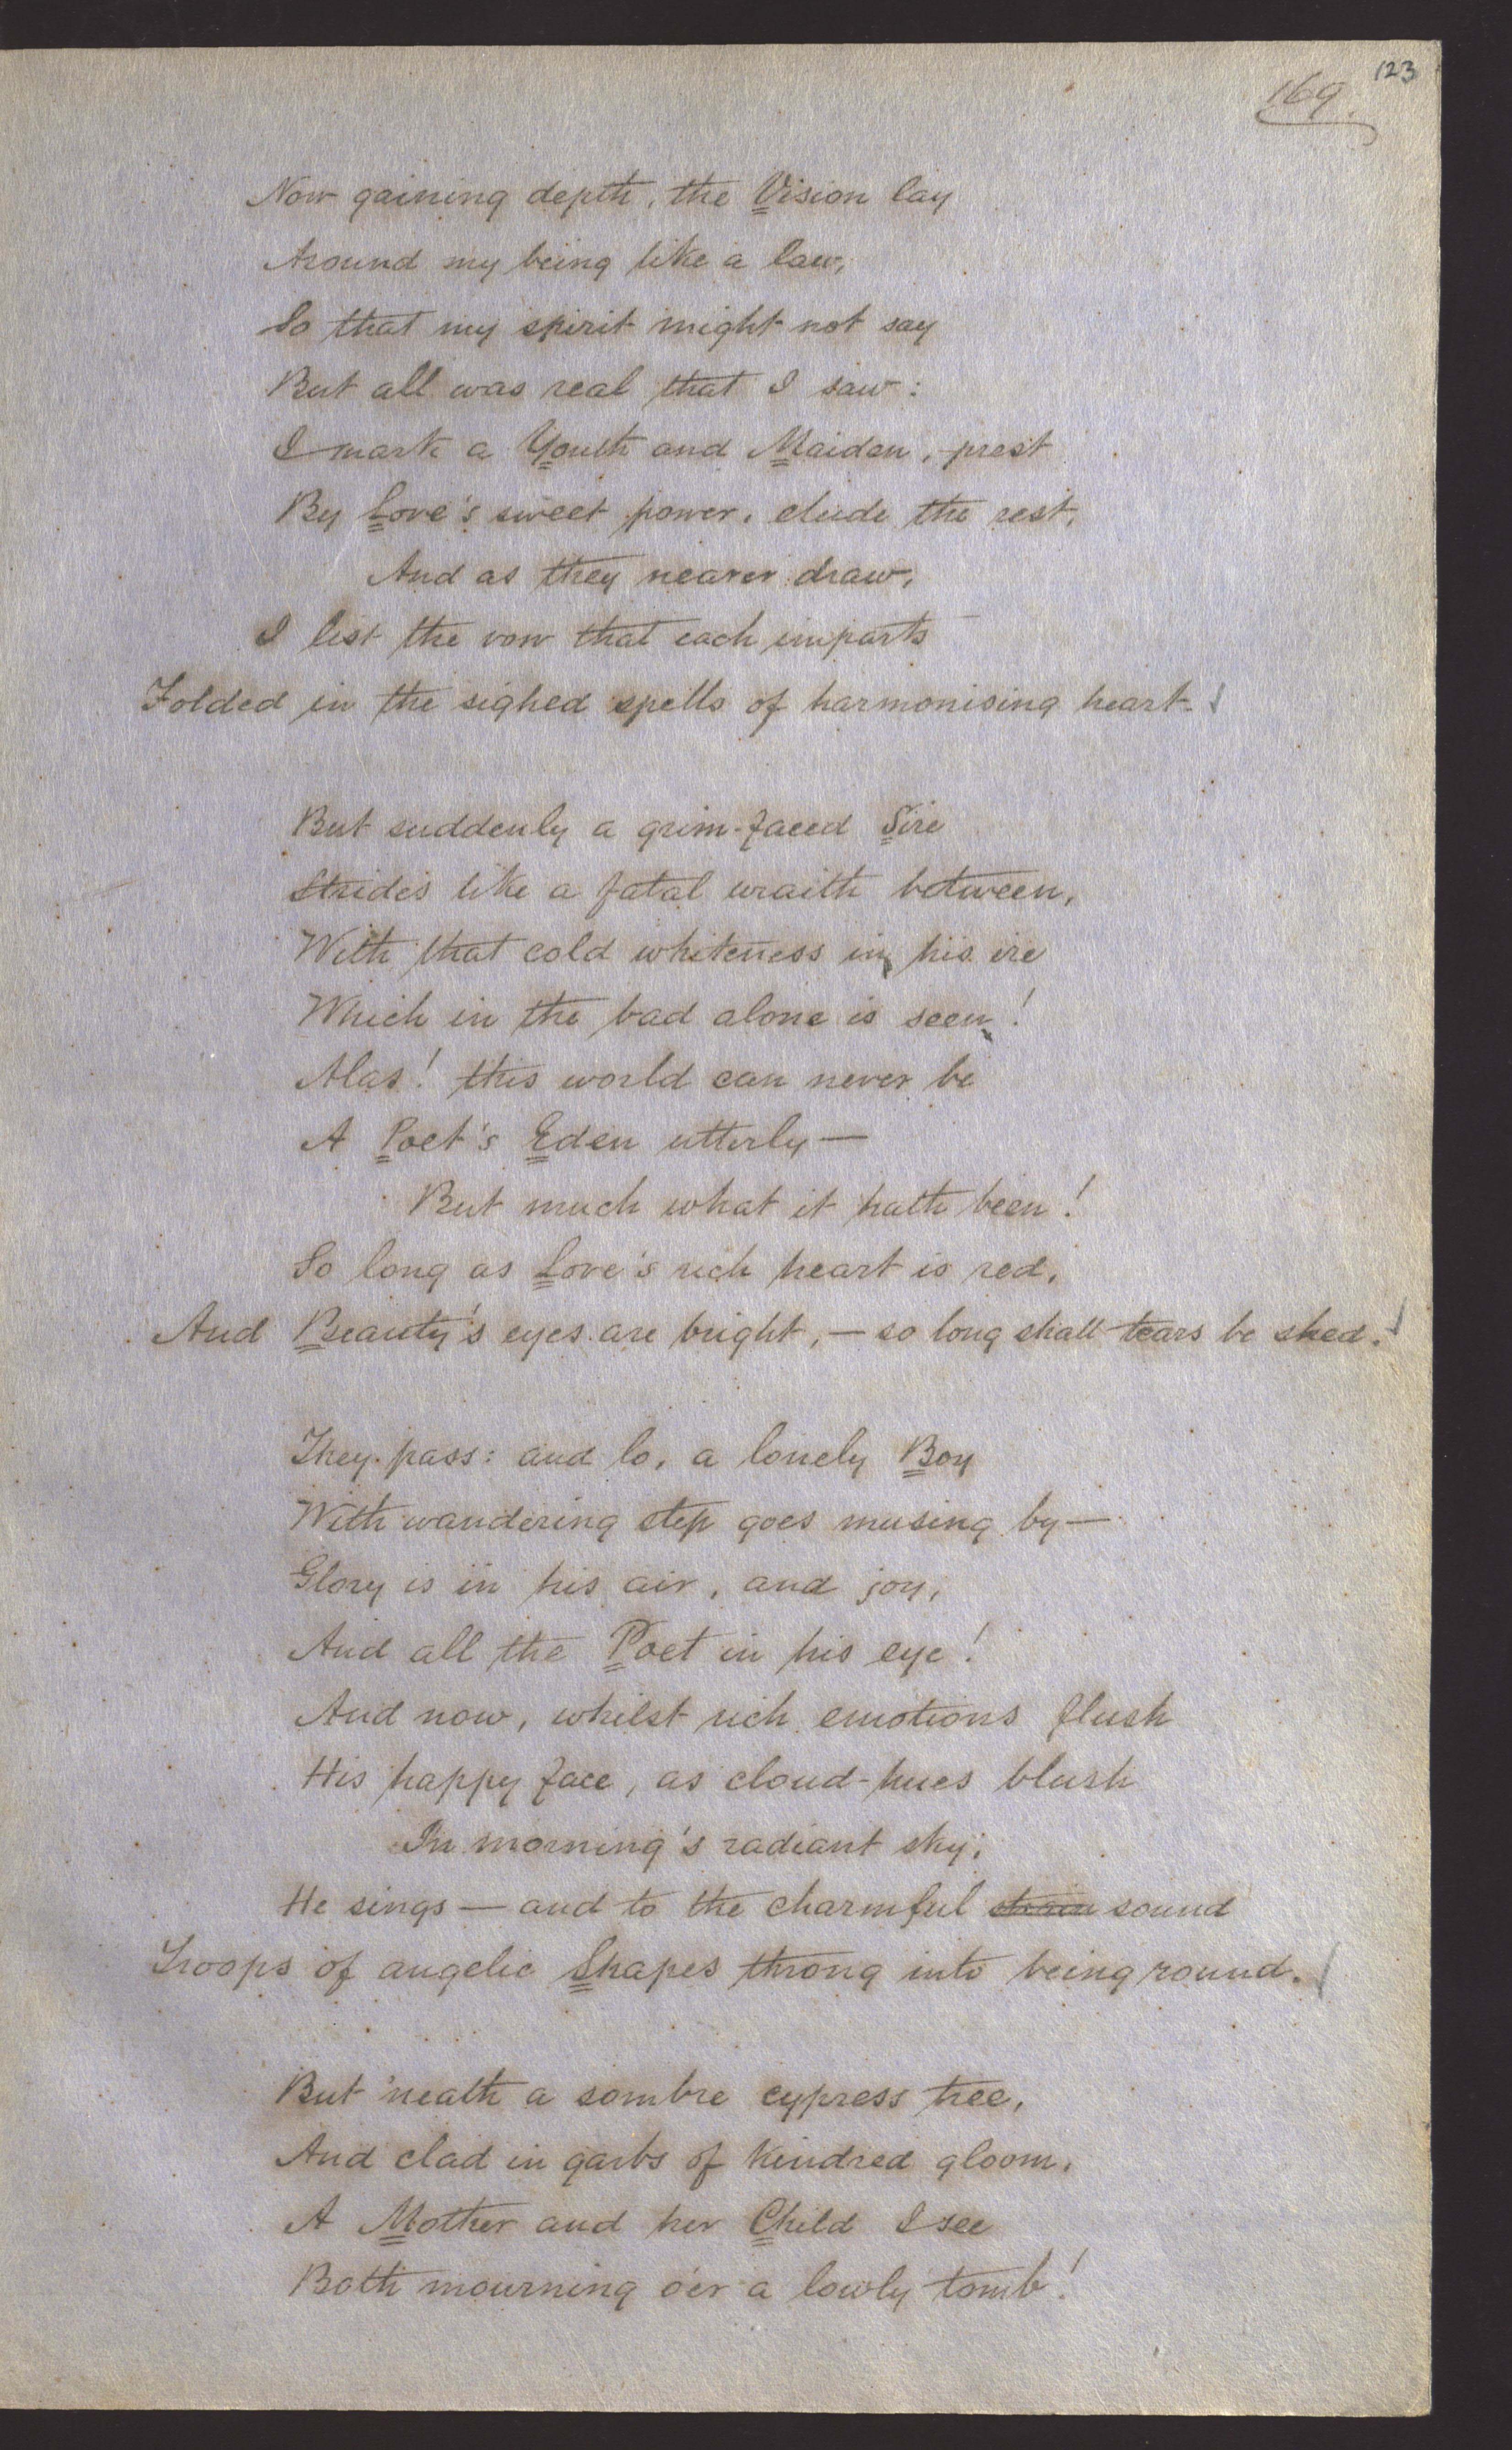 123
169.
Now gaining depth, the Vision lay
Around my being like a law,
So that my spirit might not say
But all was real that I saw:
I mark a Youth and Maiden, prest
By Love's sweet power, elude the rest,
And as they nearer draw,
I list the vow that each imparts
Folded in the sighed spells of harmonising heart.
But suddenly a grim-faced Sire
Strides like a fatal wraith between,
With that cold whiteness in his ire
Which in the bad alone is seen!
Alas! this world can never be
A Poet's Eden utterly—
But much what it hath been!
So long as Love's rich heart is red,
And Beauty's eyes are bright,— so long shall tears be shed.
They pass: and lo, a lonely Boy
With wandering step goes musing by—
Glory is in his air, and joy,
And all the Poet in his eye!
And now, whilst rich emotions flush
His happy face, as cloud-hues blush
In morning's radiant sky;
He sings — and to the charmful strain sound
Troops of angelic Shapes throng into being round.
But 'neath a sombre cypress tree,
And clad in garbs of kindred gloom,
A Mother and her Child I see
Both mourning o'er a lowly tomb!